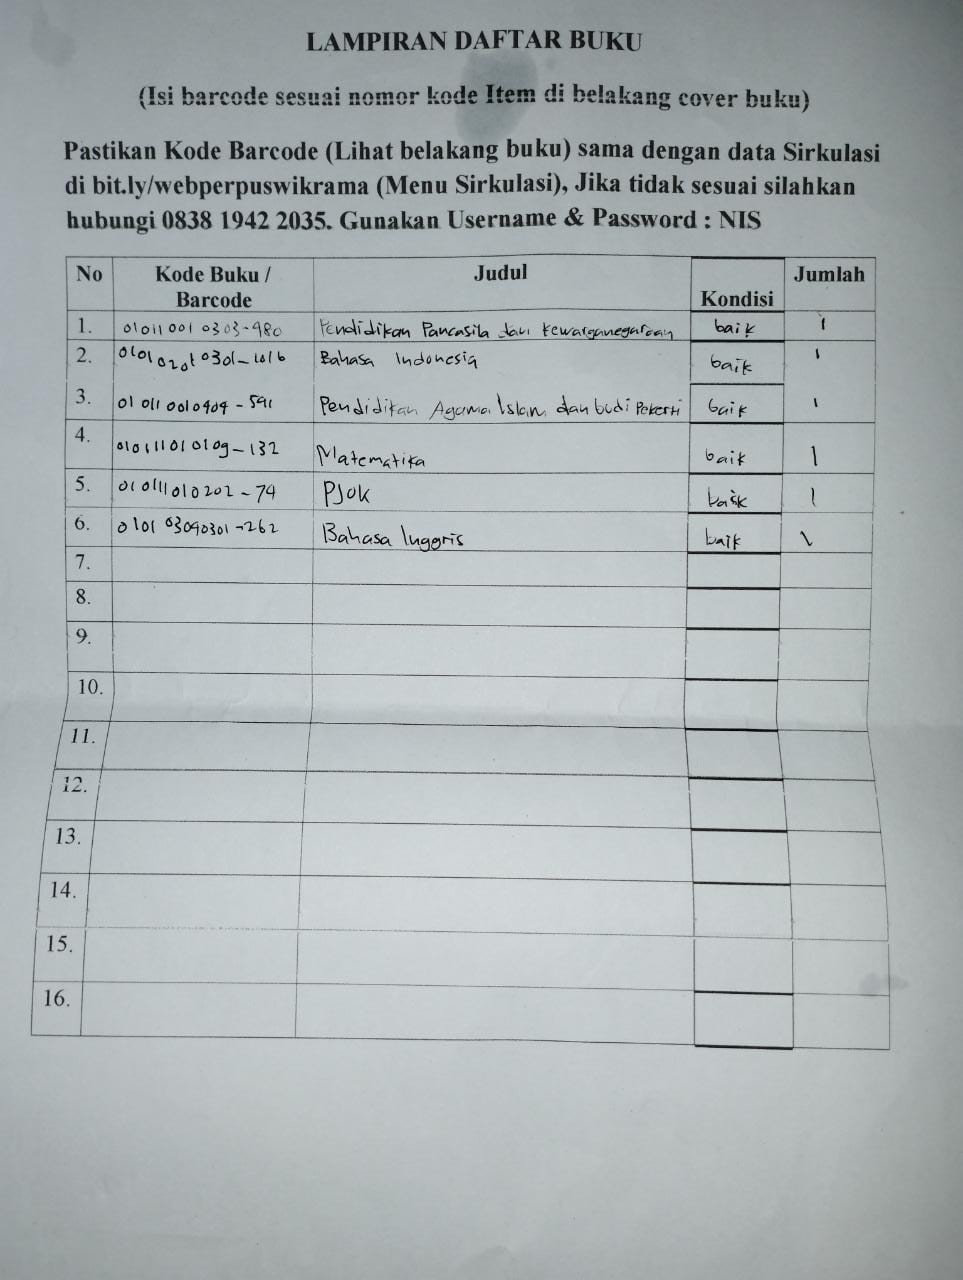 LAMPIRAN DAFTAR BUKU
(Isi barcode sesuai nomor kode Item di belakang cover buku)
Pastikan Kode Barcode (Lihat belakang buku) sama dengan data Sirkulasi
di bit.ly/webperpuswikrama (Menu Sirkulasi), Jika tidak sesuai silahkan
hubungi 0838 1942 2035. Gunakan Username & Password : NIS
No Kode Buku / Barcode Judul Kondisi Jumlah
1. 010110010303-980 Pendidikan Pancasila dan Kewarganegaraan baik 1
2. 010102010301-1016 Bahasa Indonesia baik 1
3. 010110010404-591 Pendidikan Agama Islam dan budi Pekerti baik 1
4. 010111010109-132 Matematika baik 1
5. 010111010202-74 PJOK baik 1
6. 010103090301-262 Bahasa Inggris baik 1
7.
8.
9.
10.
11.
12.
13.
14.
15.
16.